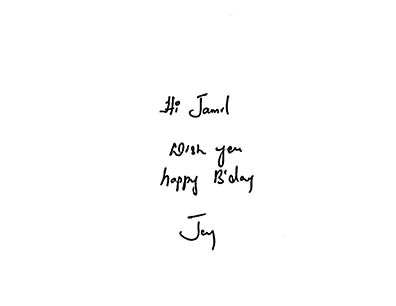 Hi Jamil
Wish you
happy B'day
Jey